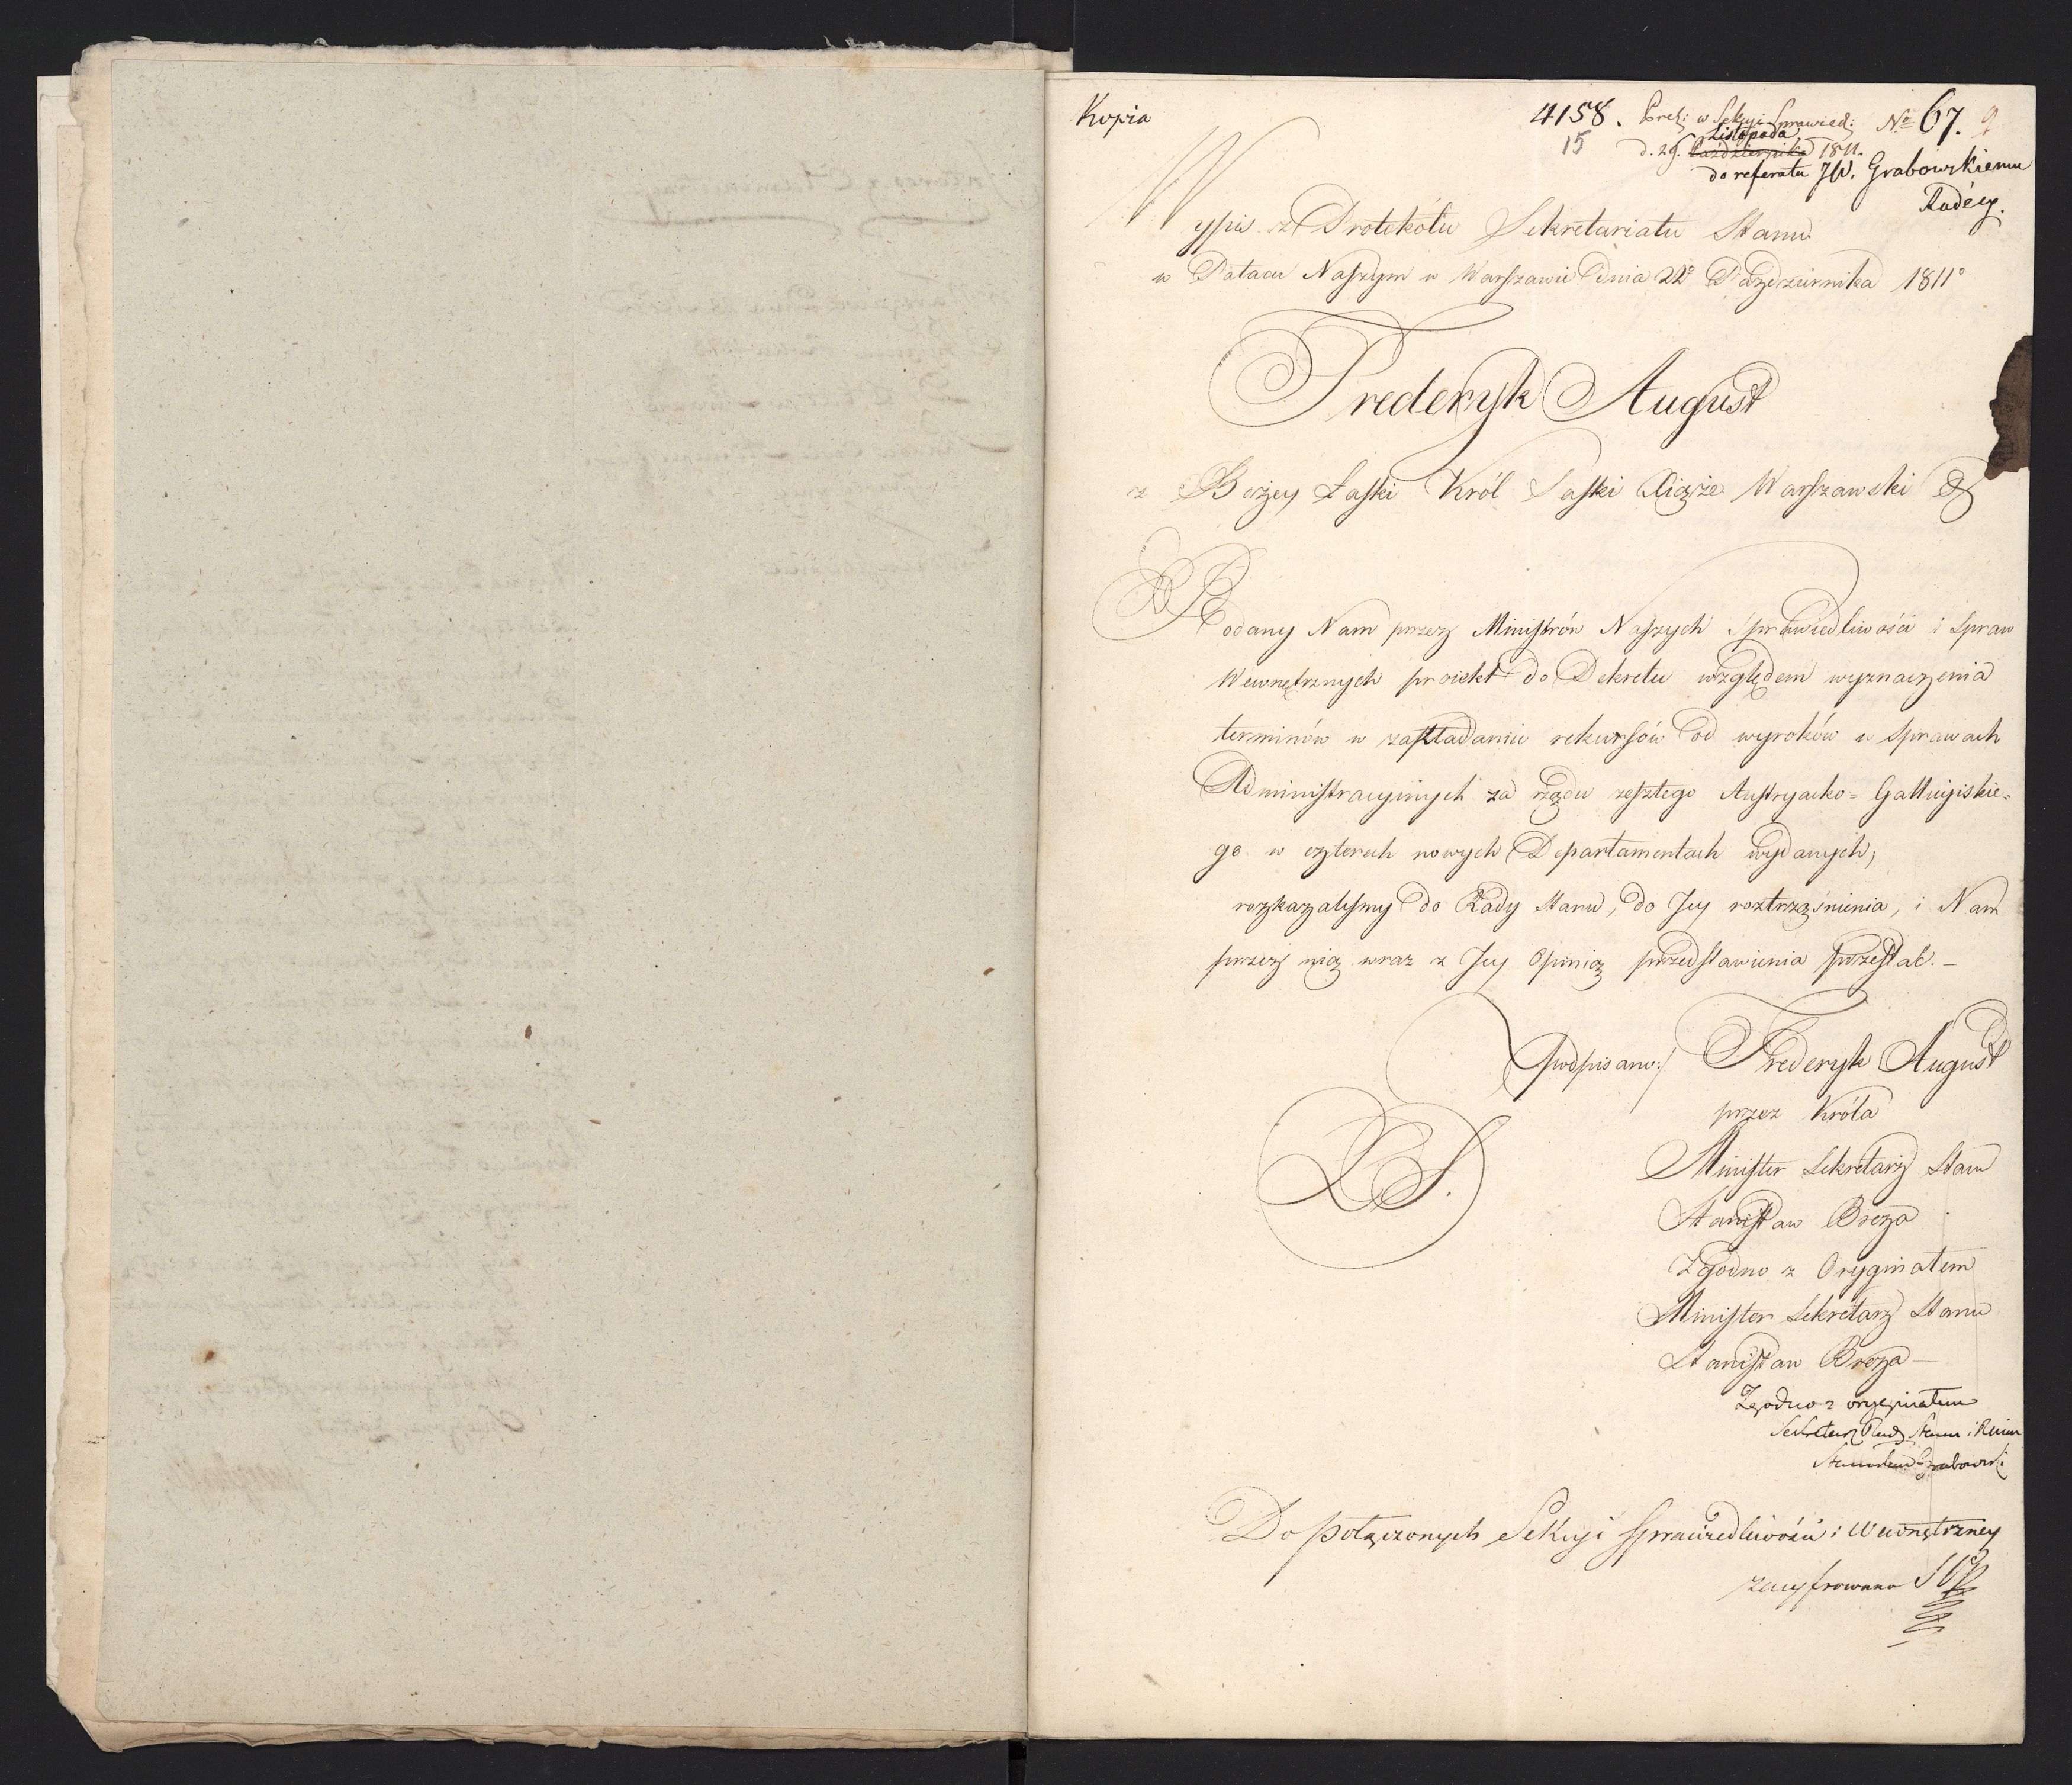 Kopia
4158. Prez: w Sekcyi Sprawied: No 67. 9
15
Listopada
d. 29. Października 1811.
do referatu JW. Grabowskiemu
Radcy.
Wypis z Protokółu Sekretariatu Stanu
w Pałacu Naszym w Warszawie Dnia 22o Października 1811o
Frederyk August
z Bożey Łaski Król Saski Xiąże Warszawski &
Podany Nam przez Ministrów Naszych Sprawiedliwości i Spraw
Wewnętrznych proiekt do Dekretu względem wyznaczenia
terminów w zakładaniu rekursów od wyroków w sprawach
Administracyinych za rządu zeszłego Austryacko=Gallicyiskie=
go w czterech nowych Departamentach wydanych;
rozkazalismy do Rady Stanu, do Jey roztrząśnienia, i Nam
przez nią wraz z Jey Opinią przedstawienia przesłać. –
/podpisano:/ Frederyk August
przez Króla
LS.
Minister Sekretarz Stanu
Stanisław Breza
Zgodno z Oryginałem
Minister Sekretarz Stanu
Stanisław Breza –
Zgodno z oryginałem
Sekretarz Rady Stanu i Minis
Stanisław Grabowski
Do połączonych Sekcyi Sprawiedliwości i Wewnętrzney
zacyfrowano